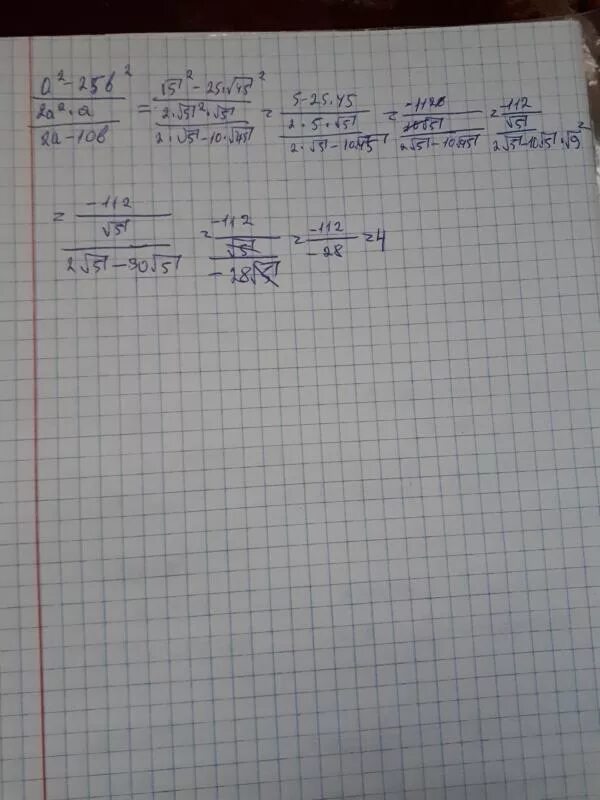 a² - 25b² / 2a² · a / 2a - 10b = √5² - 25·√45² / 2·√5²·√5 / 2·√5 - 10·√45 = 5 - 25·45 / 2·5·√5 / 2·√5 - 10√45 = -1120 / 10√5 / 2√5 - 10√45 = -112 / √5 / 2√5 - 10√5·√9 =
= -112 / √5 / 2√5 - 30√5 = -112 / √5 / -28√5 = -112 / -28 = 4